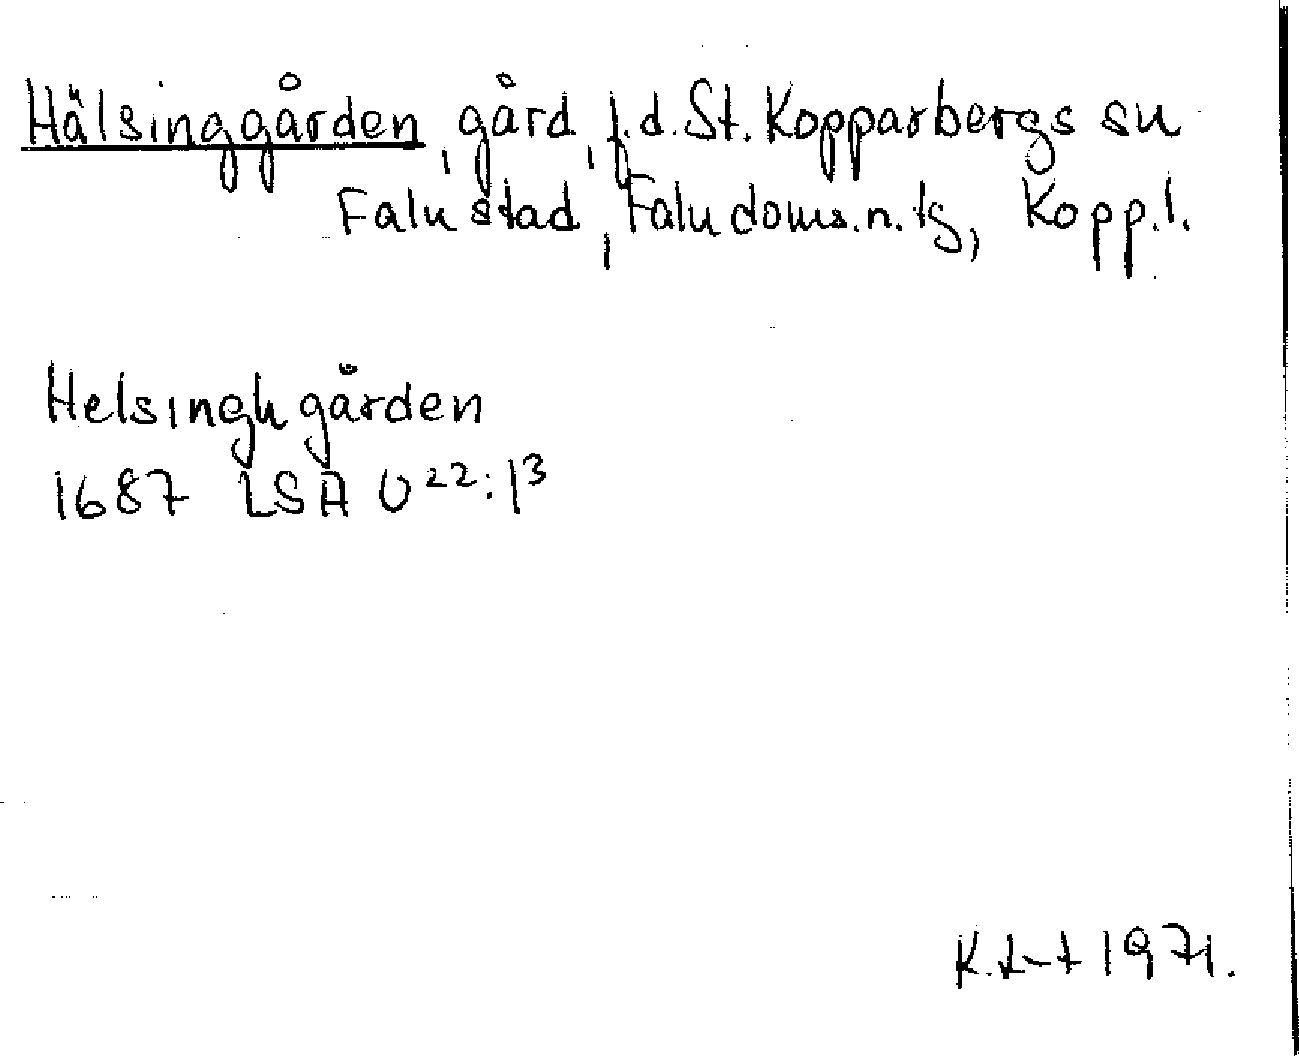 Hälsinggården, gård, f.d. St. Kopparbergs sn
Falu stad, Falu doms.n.tg, Kopp.l.
Helsinghgården
1687 LSA U22:13
1971.